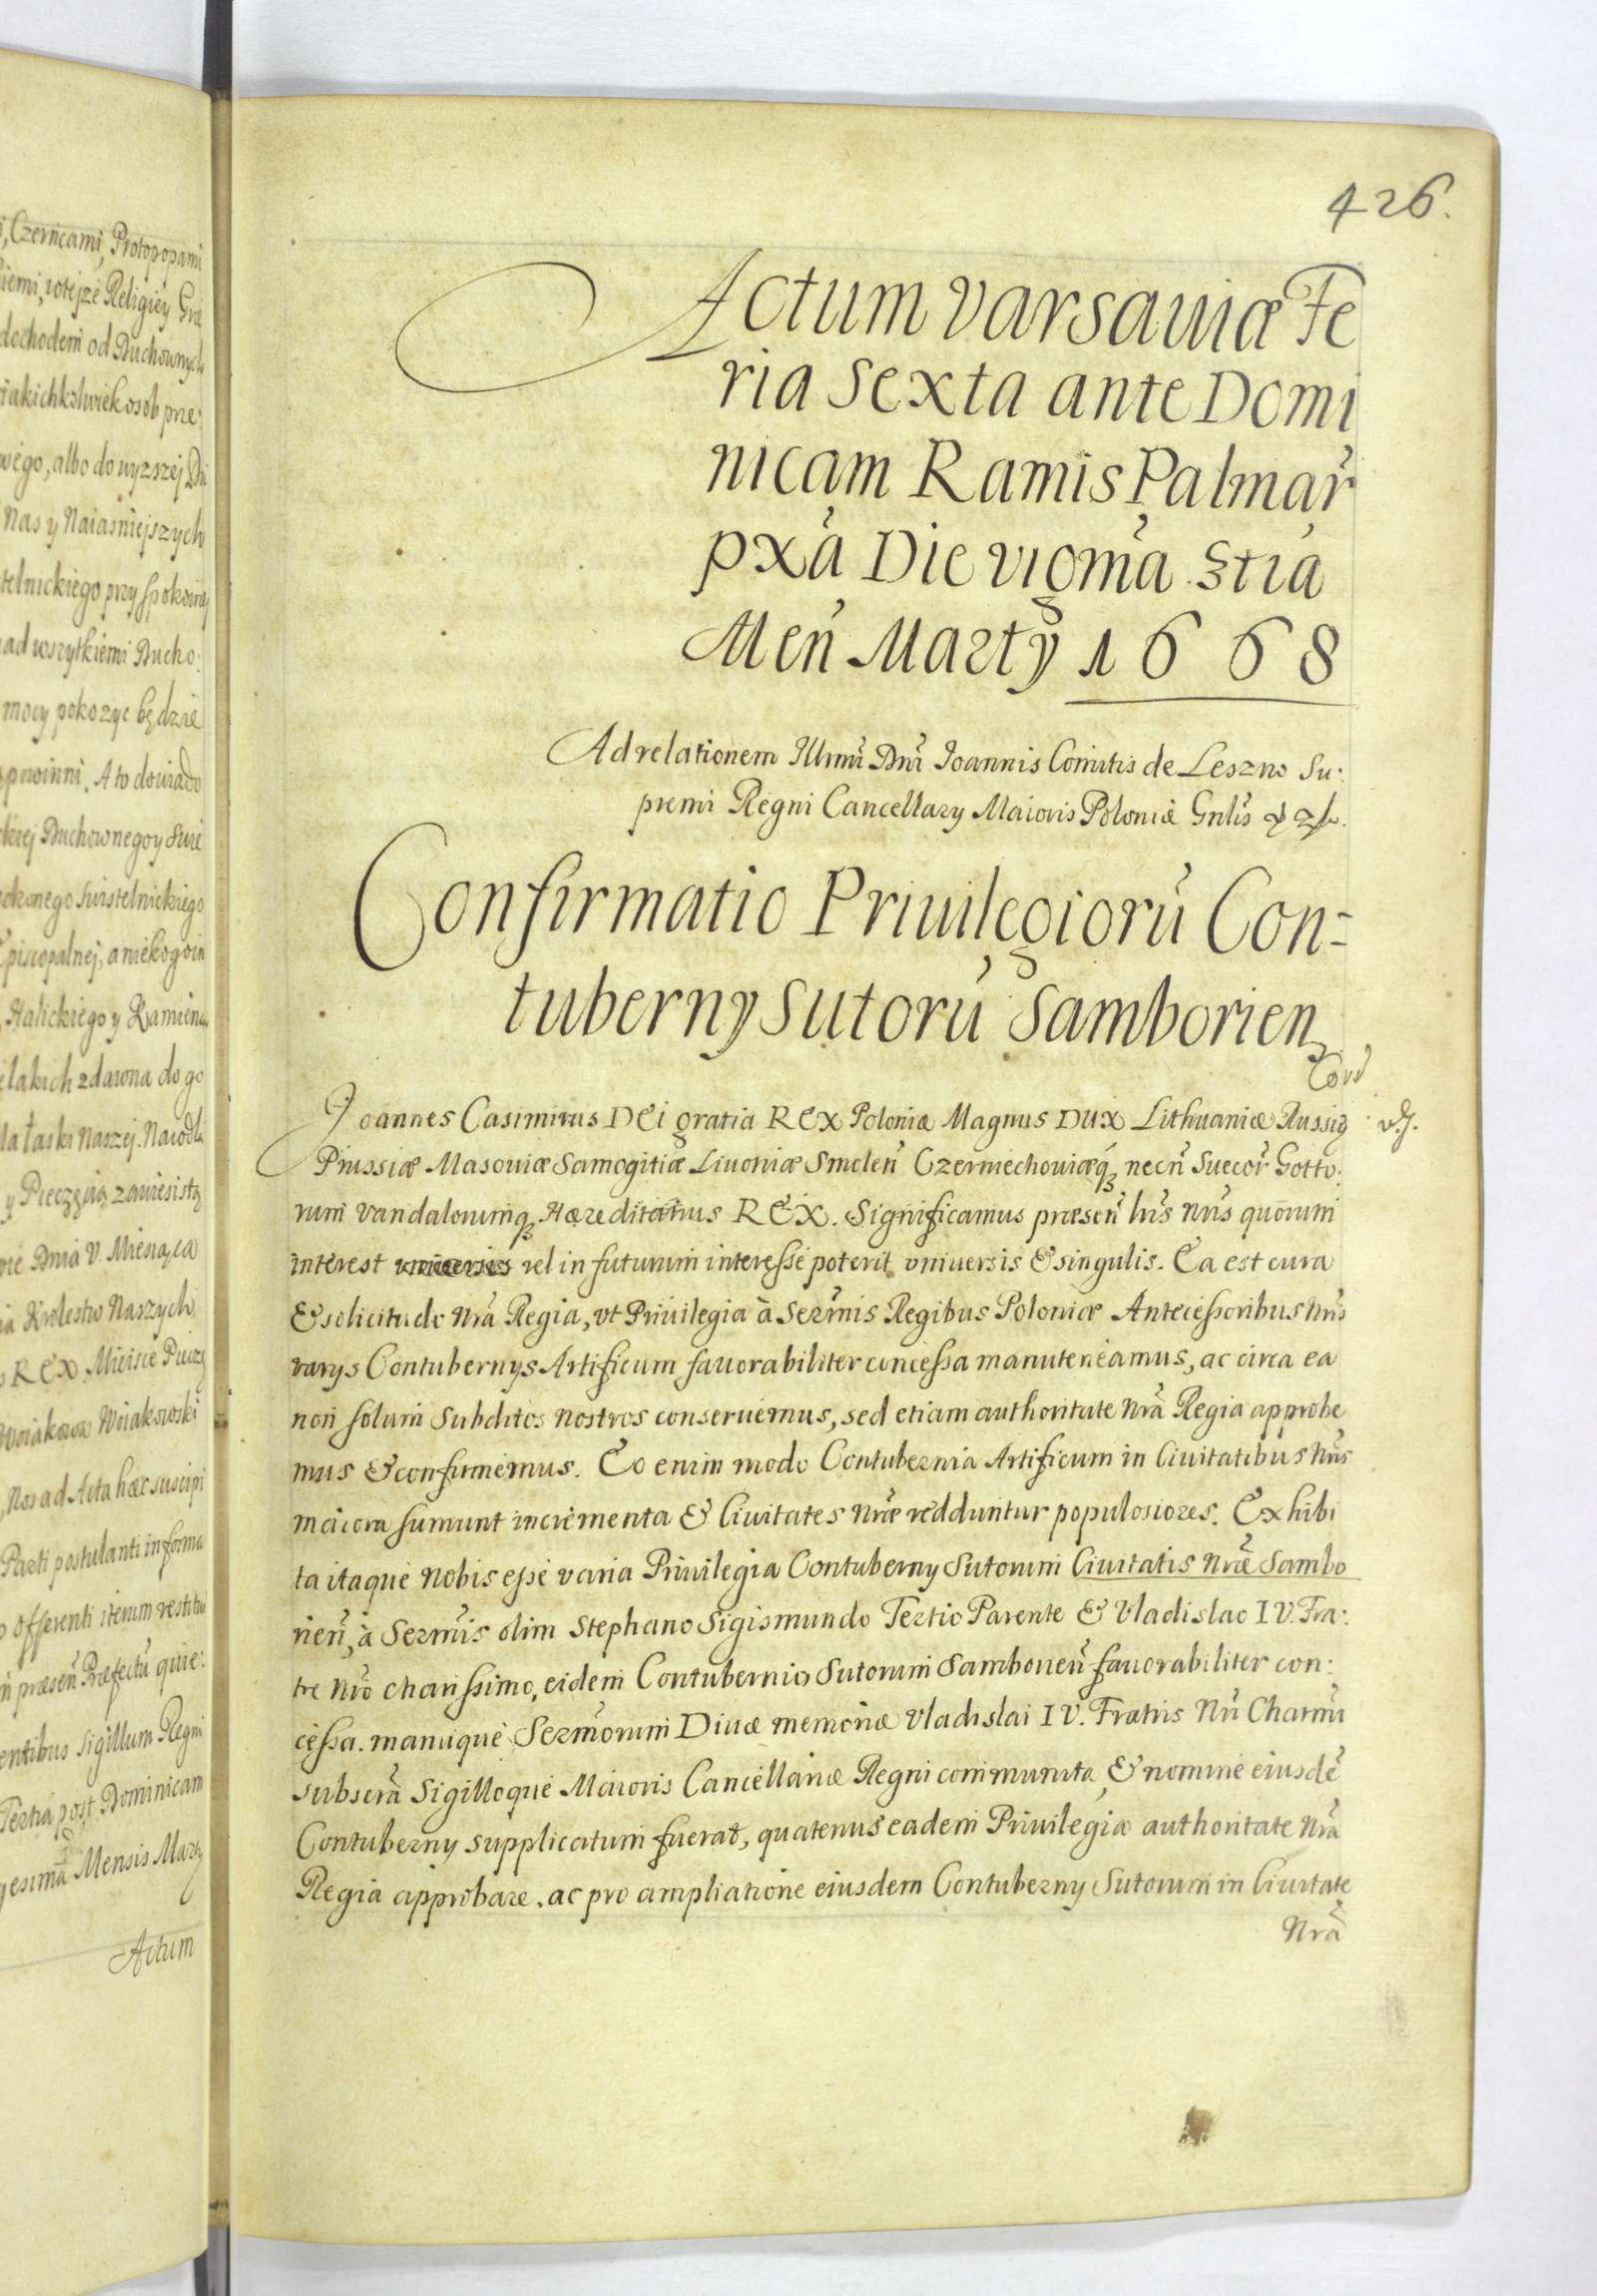 i, Czerncami, Protopopami
iemi, wteyże Religiey Grae
dochodem od Duchownych
iakichkolwiek osob prze:
wego, albo do wyzszej Du
Nas y Naiasniejszych
telnickiego przy spokoiney
ad wszytkiemi Ducho:
mocy pokozyc będzie
powinni. A to dowiado
Duchownego y Swie
Swistelnickiego
Episcopalnej, a niekogo in
Halickiego y Kamienc
elakich zdawna do go
la łaski Naszej. Na co dla
y Pieczęcią zawiesistą
Dnia V. Miesiąca
ia Krolestw Naszych
s REX. Mieisce Pieczę
Woiakowski
Nos ad Acta hæc suscipi
Parti postulanti in forma
offerenti iterum restitu
præsen Præfectũ quie:
entibus Sigillum Regni
Tertia post Dominicam
gesima Mensis Marty
Actum
426.
Actum Varsauiæ Fe
ria Sexta ante Domi
nicam Ramis Palmar̃
pxã Die vigmã 3tia
Meñ Marty 1668
Ad relationem Illmi Dni Joannis Comitis de Leszno Su:
premi Regni Cancellary Maioris Poloniæ Gnlis
Confirmatio Priuilegiorũ Con=
tuberny Sutorũ Samborien
Joannes Casimirus DEI gratia REX Poloniæ Magnus DUX Lithuaniæ Russiæ
Prussiæ Masouiæ Samogitiæ Liuoniæ Smoleñ Czerniechouiæq́ꝫ necñ Suecor̃ Gotto:
rum Vandalorumqꝫ Hæreditarius REX. Significamus præseñ lris nris quorum
interest vel in futurum interesse poterit vniuersis & singulis. Ea est cura
& solicitudo Nrã Regia, vt Priuilegia à Sermis Regibus Poloniæ Antecessoribus Nris
varys Contubernys Artificum fauorabiliter concessa manuteneamus, ac circa ea
non solum Subditos nostros conseruemus, sed etiam authoritate Nrã Regia approbe
mus & confirmemus. Eo enim modo Contubernia Artificum in Ciuitatibus Nris
maiora sumunt incrementa & Ciuitates Nræ redduntur populosiores. Exhibi
ta itaque Nobis esse varia Priuilegia Contuberny Sutorum Ciuitatis Nræ Sambo
rieñ, à Sermis olim Stephano Sigismundo Tertio Parente & Vladislao IV. Fra:
tre Nrõ charissimo, eidem Contubernio Sutorum Samborieñ fauorabiliter con:
cessa. manuque Sermorum Diuæ memoriæ Vladislai IV. Fratris Nri Charmi
subscrã Sigilloque Maioris Cancellariæ Regni communita, & nomine eiusdẽ
Contuberny supplicatum fuerat, quatenus eadem Priuilegia authoritate Nrã
Regia approbare, ac pro ampliatione eiusdem Contuberny Sutorum in Ciuitate
Nrã